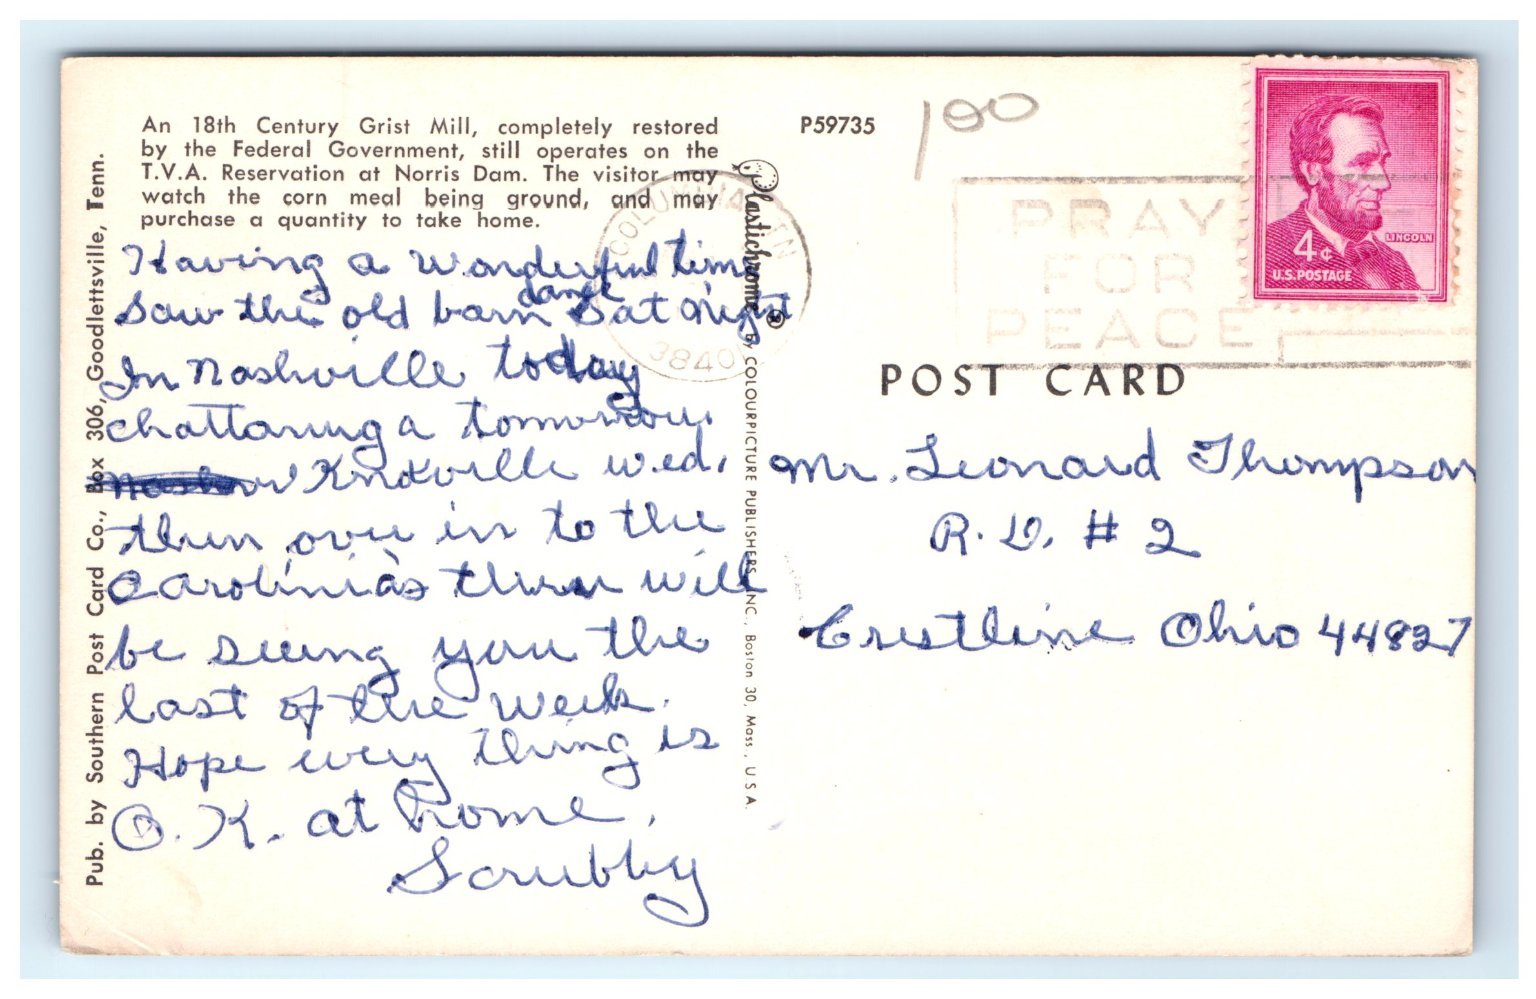 An 18th Century Grist Mill, completely restored
by the Federal Government, still operates on the
T.V.A. Reservation at Norris Dam. The visitor may
watch the corn meal being ground, and may
purchase a quantity to take home.
Having a wonderful time
Saw the old barn dance Sat night
In Nashville today
chattanuga tomorrow.
Knoxville wed.
then over in to the
Carolinia's then will
be seeing you the
last of the week.
Hope every thing is
O.K. at home.
Scrubby
Pub. by Southern Post Card Co., Box 306, Goodlettsville, Tenn.
Plastichrome ® BY COLOURPICTURE PUBLISHERS, INC., Boston 30, Mass., U.S.A.
P59735
100
COLUMBIA TN
38401
PRAY
FOR
PEACE
4¢
LINCOLN
U.S. POSTAGE
POST CARD
Mr. Leonard Thompson
R.D. # 2
Crestline Ohio 44827